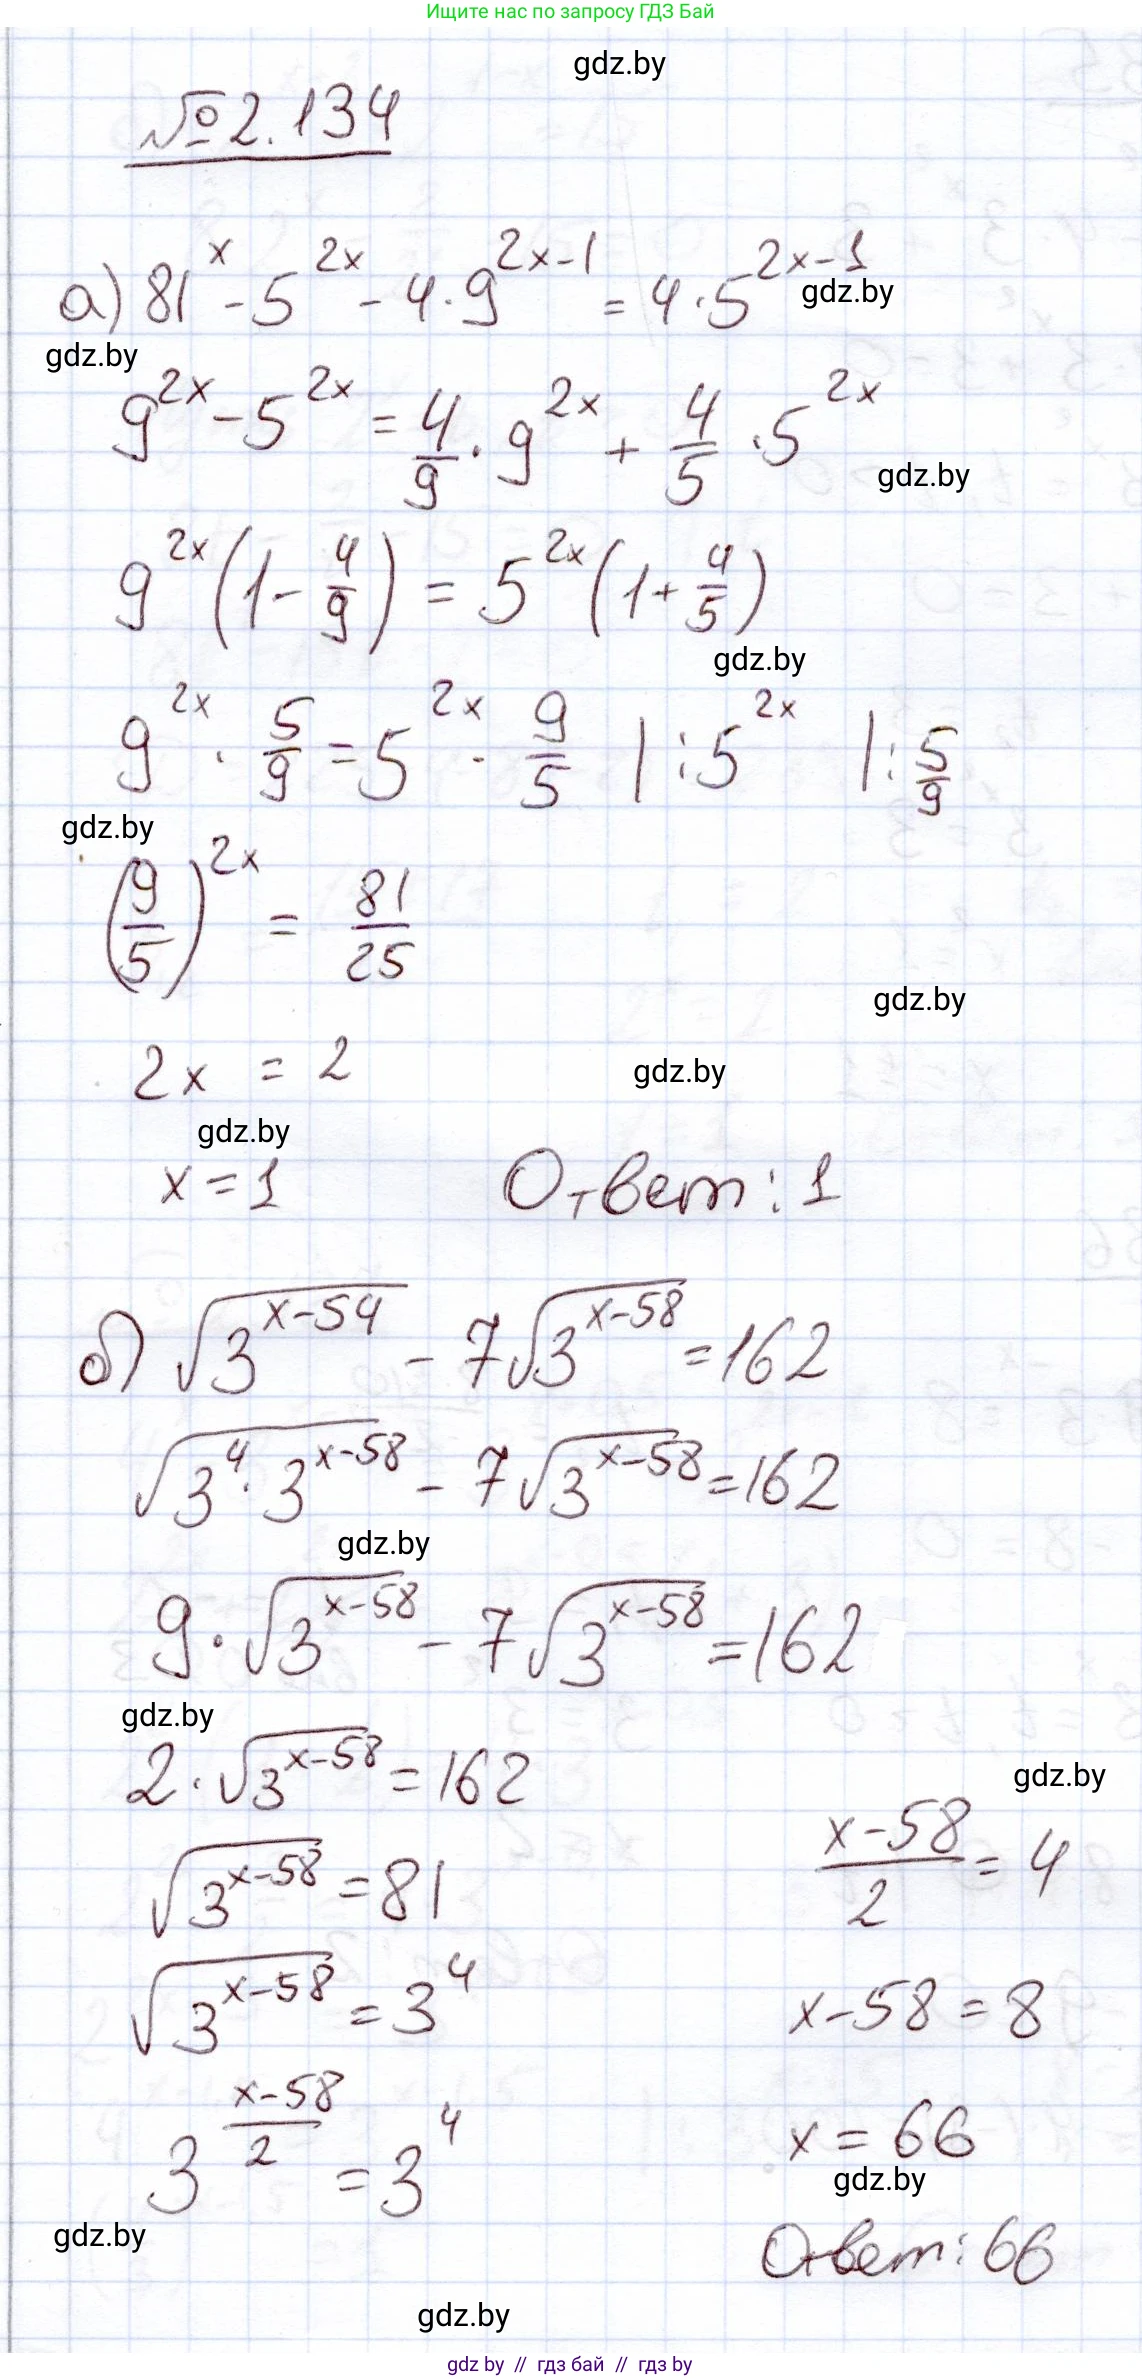 Ищите нас по запросу ГДЗ Бай
gdz.by
№2.134
а) 81^x - 5^{2x} - 4·9^{2x-1} = 4·5^{2x-1}
gdz.by
gdz.by
9^{2x} - 5^{2x} = 4/9 · 9^{2x} + 4/5 · 5^{2x}
gdz.by
9^{2x}(1 - 4/9) = 5^{2x}(1 + 4/5)
gdz.by
9^{2x} · 5/9 = 5^{2x} · 9/5 | : 5^{2x} | : 5/9
gdz.by
(9/5)^{2x} = 81/25
gdz.by
2x = 2
gdz.by
gdz.by
x = 1 Ответ: 1
б) √(3^{x-54}) - 7√(3^{x-58}) = 162
√(3^4 · 3^{x-58}) - 7√(3^{x-58}) = 162
gdz.by
9·√(3^{x-58}) - 7√(3^{x-58}) = 162
gdz.by
2·√(3^{x-58}) = 162
√(3^{x-58}) = 81
√(3^{x-58}) = 3^4
3^{(x-58)/2} = 3^4
gdz.by
gdz.by
(x-58)/2 = 4
x-58 = 8
x = 66
gdz.by
Ответ: 66
gdz.by
gdz by // гдз бай // гдз by